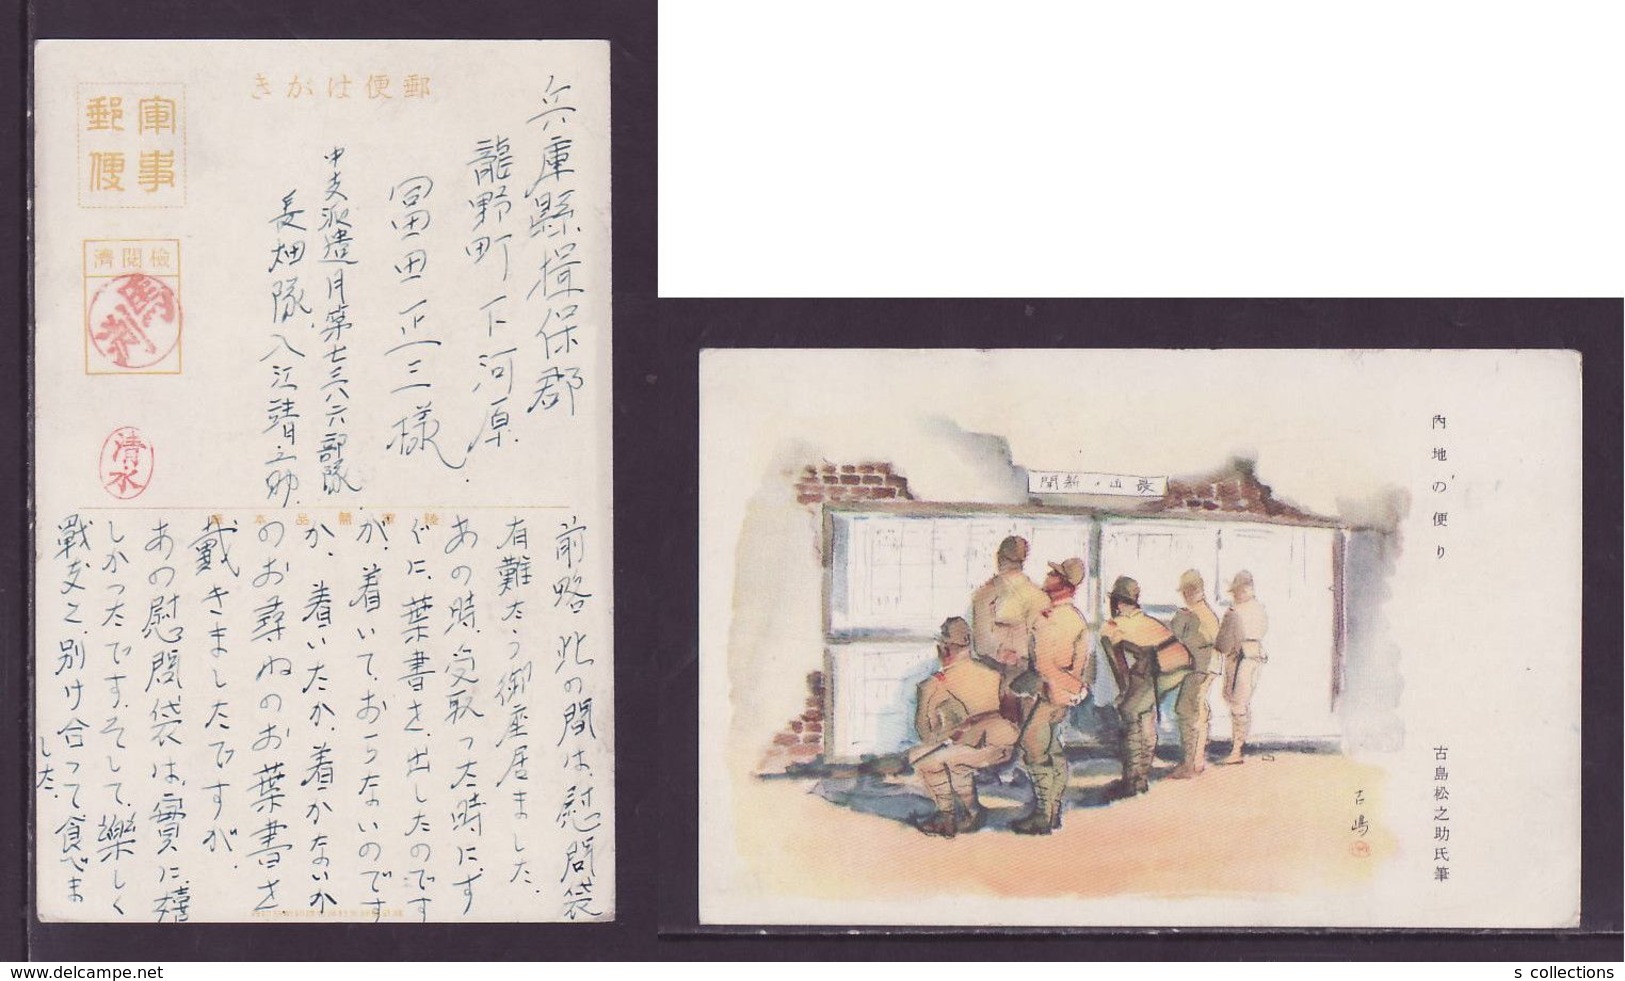 きがは便郵
軍事
郵便
濟閲檢
清水
兵庫縣揖保郡
龍野町下河原
冨田正三様
中支派遣月第七三八六部隊
長畑隊、入江靖之助
前略此の間は、慰問袋
有難たう御座居ました。
あの時、受取った時に、す
ぐに、葉書を出したのです
が、着いて、おらないのです
か、着いたか、着かないか
のお尋ねのお葉書を
戴きましたですが、
あの慰問袋は、實に、嬉
しかったです、そして、樂しく
戰友と、別け合って食べま
した。
内地の便り
古島松之助氏筆
聞新
s collections